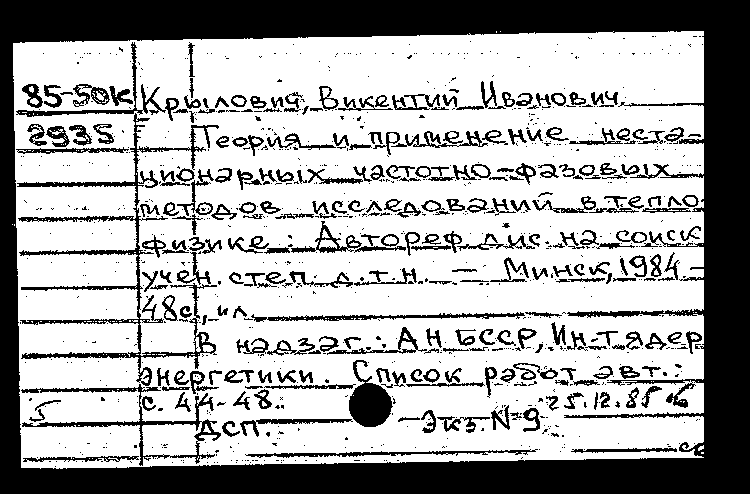 85-50к Крылович, Викентий Иванович.
2935 Теория и применение неста-
ционарных частотно-фазовых
методов исследований в тепло-
физике: Автореф дис. на соиск
учен. степ. д.т.н. — Минск, 1984 —
48с, ил.
В надзаг.: АН БССР, Ин-т ядер
энергетики. Список работ авт.:
с. 44-48.. 25.12.85
5 ДСП. Экз. № 9